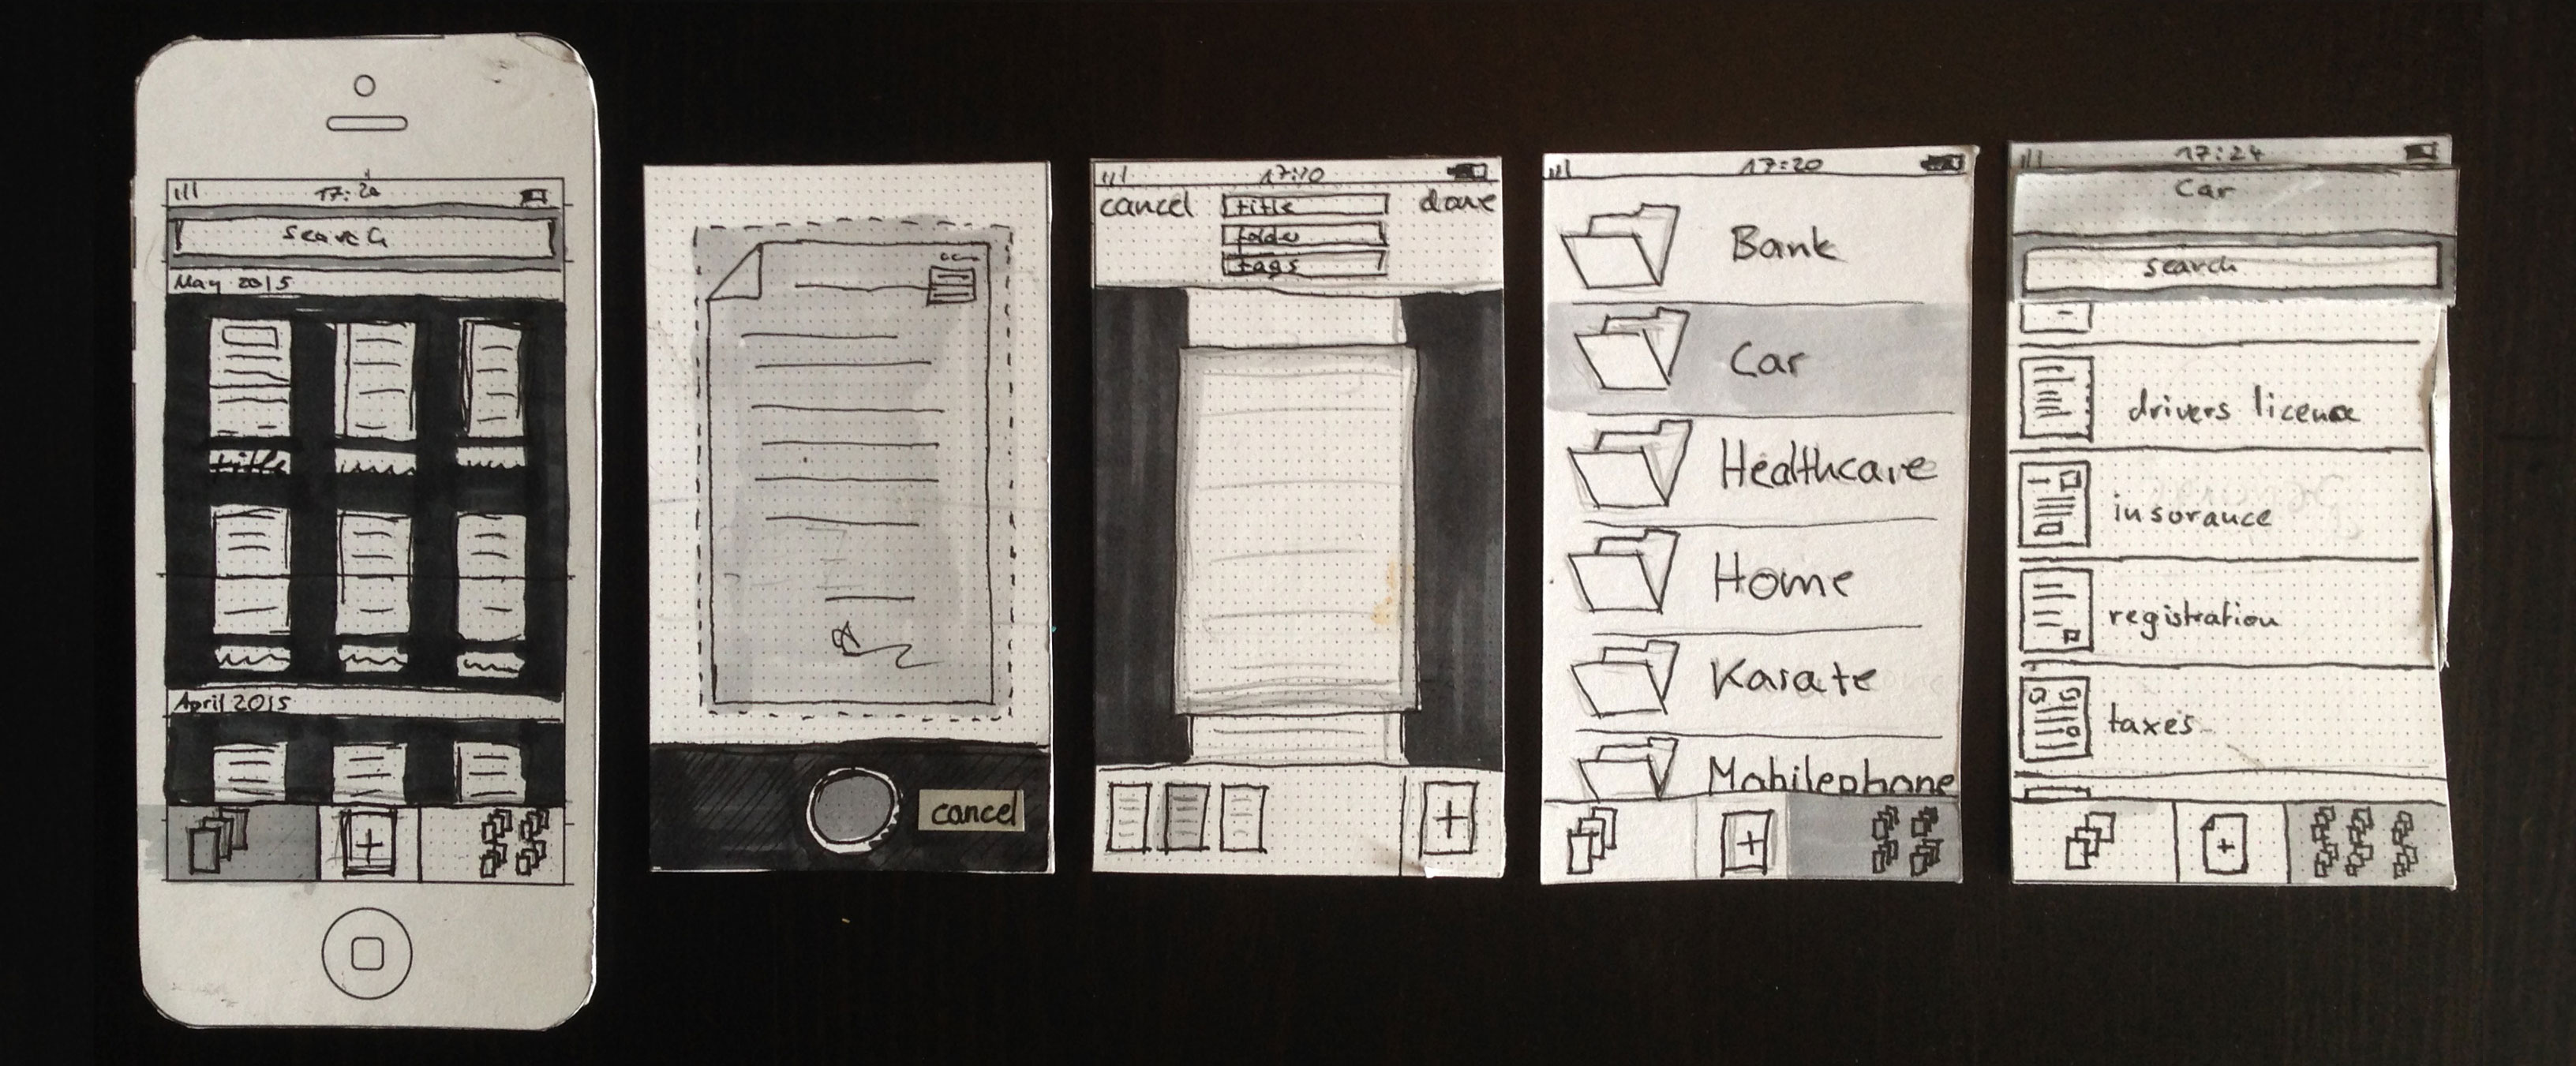 17:20
search
May 2015
title
April 2015
cancel
17:20
cancel
title
done
folder
tags
17:20
Bank
Car
Healthcare
Home
Karate
Mobilephone
17:24
Car
search
drivers license
insurance
registration
taxes